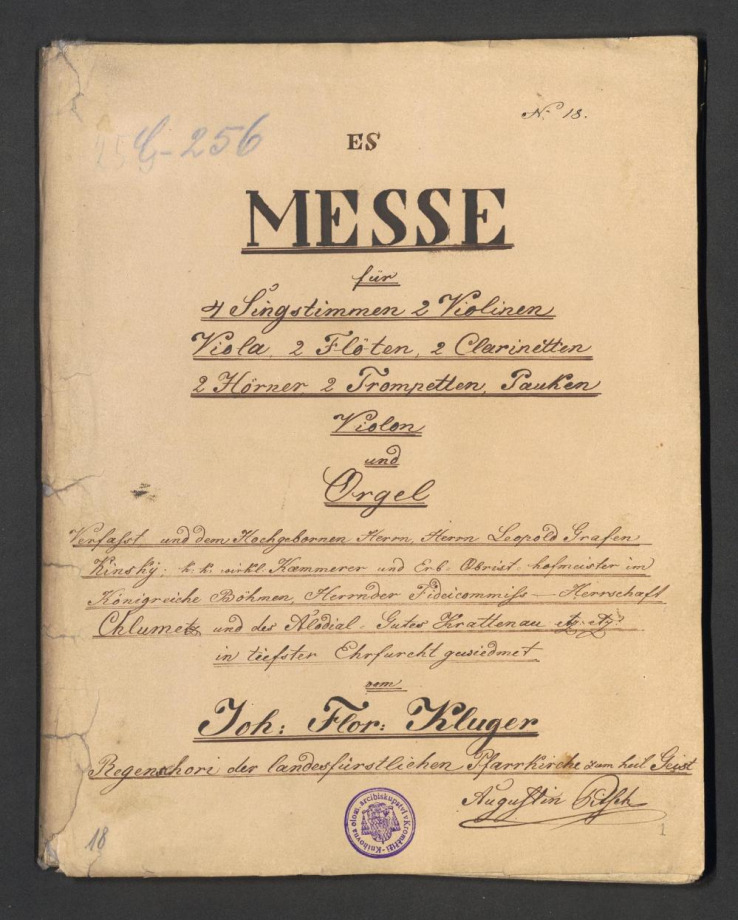 G-256
No 18.
ES
MESSE
für
4 Singstimmen 2 Violinen
Viola, 2 Flöten, 2 Clarinetten
2 Hörner 2 Trompetten, Pauken
Violon
und
Orgel
Verfasst und dem Hochgebornen Herrn, Herrn Leopold Grafen
Kinsky; k. k. wirkl. Kæmmerer und Erb-Obrist-hofmeister im
Königreiche Böhmen, Herrnder Fideicommiss-Herrschaft
Chlumetz und des Alodial-Gutes Krattenau
in tiefster Ehrfurcht gewiedmet
vom
Joh: Flor: Kluger
Regenschori der landesfürstlichen Pfarrkirche zum heil Geist
Augustin Pitsch
Knihovna olom. arcibiskupství v Kroměříži
18
1